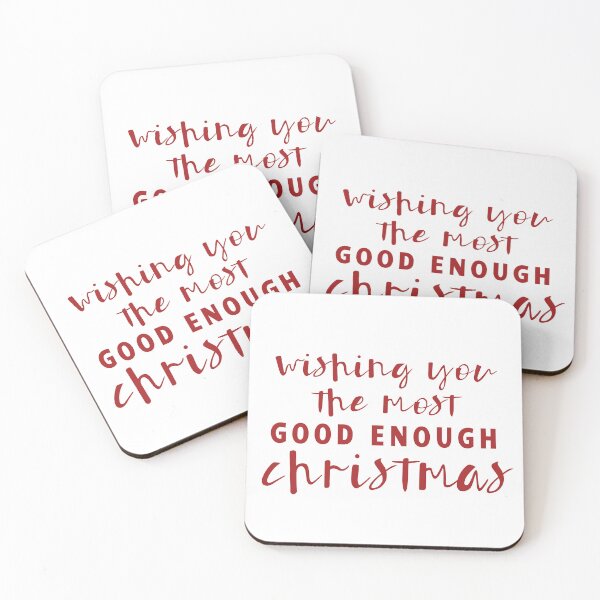 wishing you
the most
wishing you
the most
GOOD ENOUGH
christmas
wishing you
the most
GOOD ENOUGH
wishing you
the most
GOOD ENOUGH
christmas